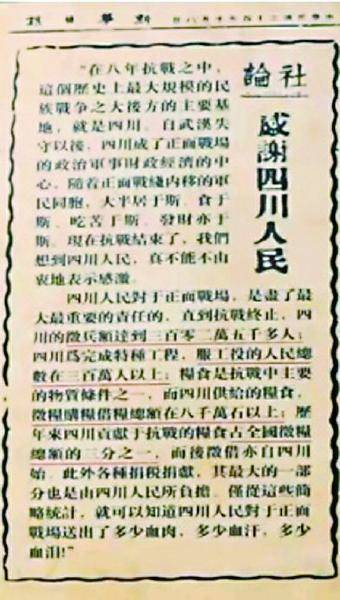 新華日報
社論
感謝四川人民
“在八年抗戰之中，
這個歷史上最大規模的民
族戰爭之大後方的主要基
地，就是四川。自武漢失
守以後，四川成了正面戰場
的政治軍事財政經濟的中
心，隨着正面戰綫内移的軍
民同胞，大半居于斯、食于
斯、吃苦于斯、發財亦于
斯。現在抗戰結束了，我們
想到四川人民，真不能不由
衷地表示感激。
四川人民對于正面戰場，是盡了最
大最重要的責任的，直到抗戰終止，四
川的徵兵額達到三百零二萬五千多人；
四川爲完成特種工程，服工役的人民總
數在三百萬人以上；糧食是抗戰中主要
的物質條件之一，而四川供給的糧食，
徵糧購糧借糧總額在八千萬石以上；歷
年來四川貢獻于抗戰的糧食占全國徵糧
總額的三分之一，而後徵借亦自四川
始。此外各種捐税捐獻，其最大的一部
分也是由四川人民所負擔。僅從這些簡
略統計，就可以知道四川人民對于正面
戰場送出了多少血肉，多少血汗，多少
血泪！”